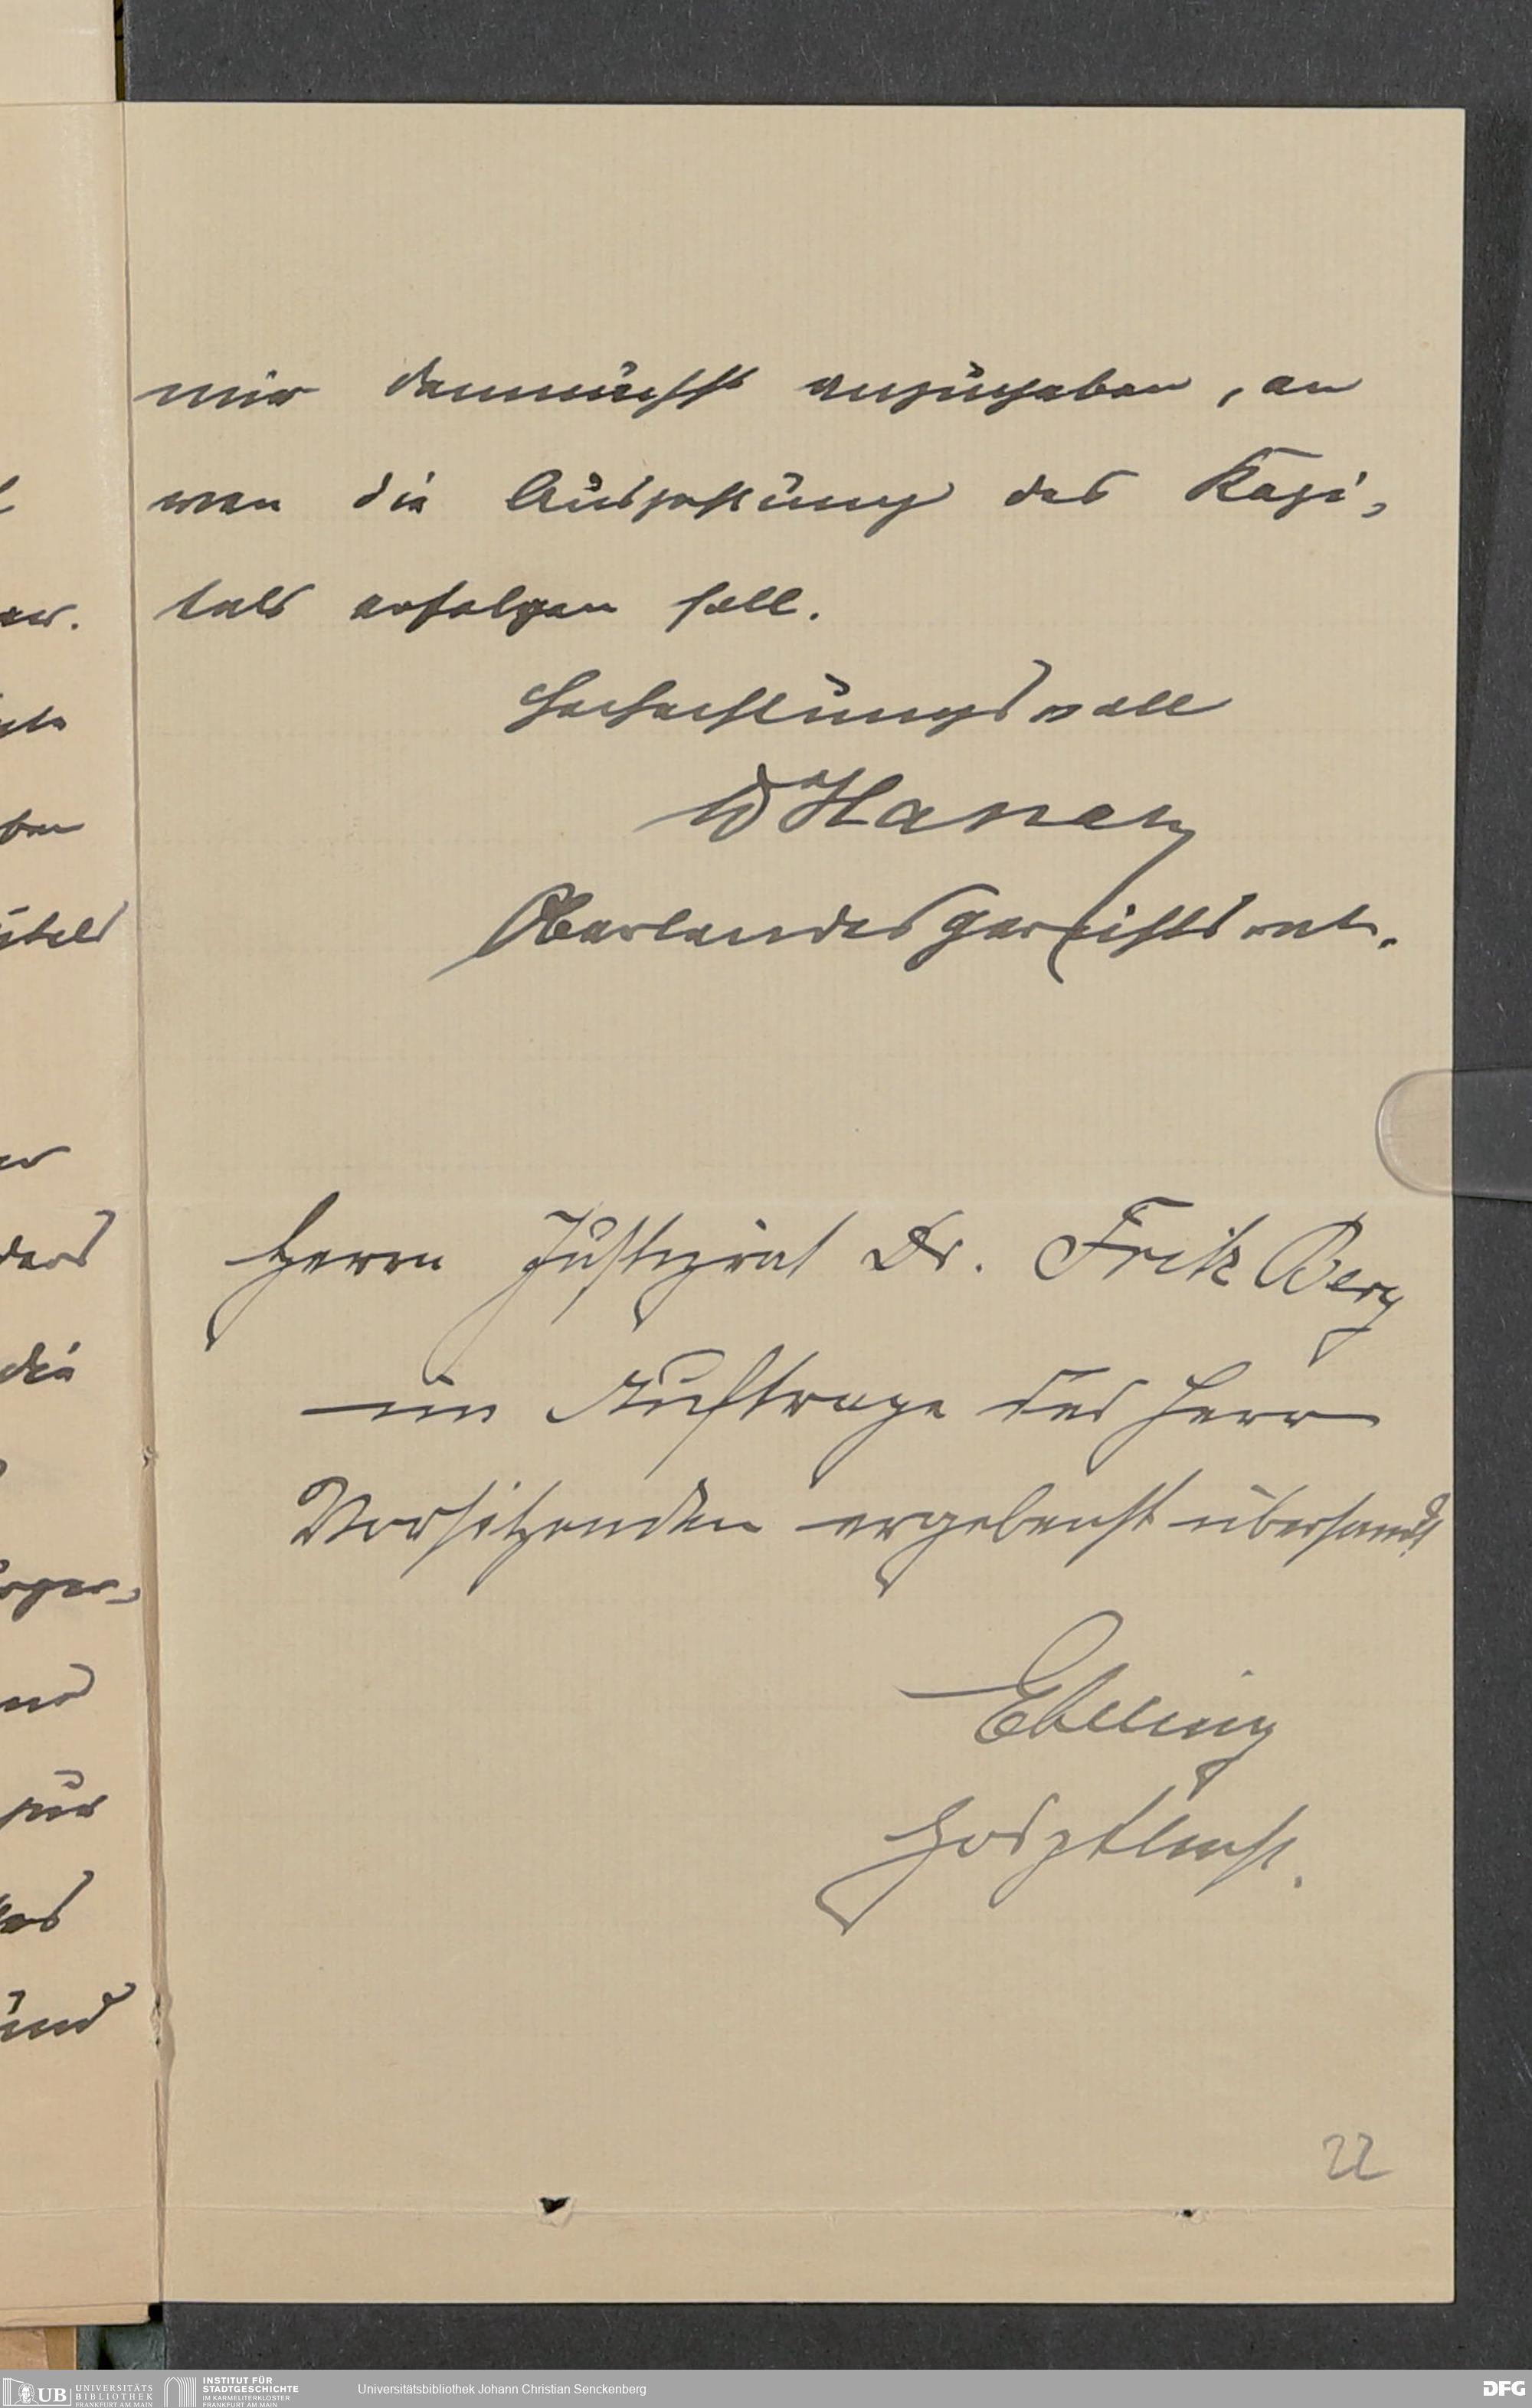 mir demnächst anzugeben, an
wen die Auszahlung des Kapi-
tals erfolgen soll.
Hochachtungsvoll
Oberlandesgerichtsrat.
Herrn Justizrat Dr. Fritz Berg
im Auftrage des Herrn
Vorsitzenden ergebenst übersandt
Ebeling
22
UB UNIVERSITÄTS
BIBLIOTHEK
FRANKFURT AM MAIN
INSTITUT FÜR
STADTGESCHICHTE
IM KARMELITERKLOSTER
FRANKFURT AM MAIN
Universitätsbibliothek Johann Christian Senckenberg
DFG